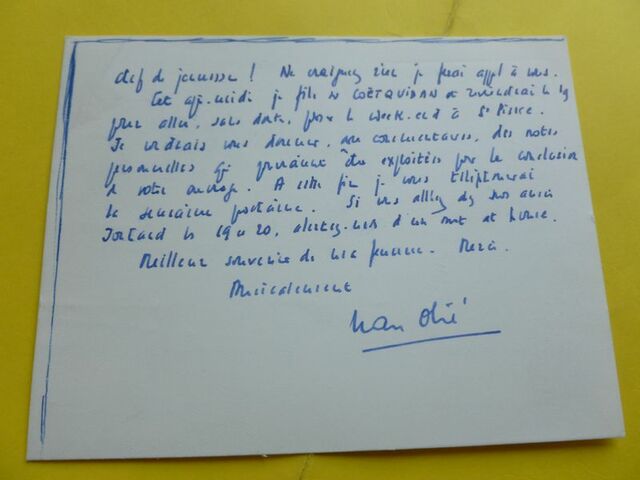 chef de jeunesse ! Ne craignez rien je ferai appel à vous.
Cet apr-midi je file sur COËTQUIDAN et reviendrai le 19
pour aller, sans doute, passer le week-end à St Pierre.
Je voudrais vous donner, comme commentaires, des notes
personnelles qui pourraient être exploitées pour la conclusion
de votre ouvrage. A cette fin je vous téléphonerai
la semaine prochaine. Si vous allez
le 19 ou 20, alertez-moi d'un mot at home.
Meilleur souvenir de ma femme. Merci.
Amicalement